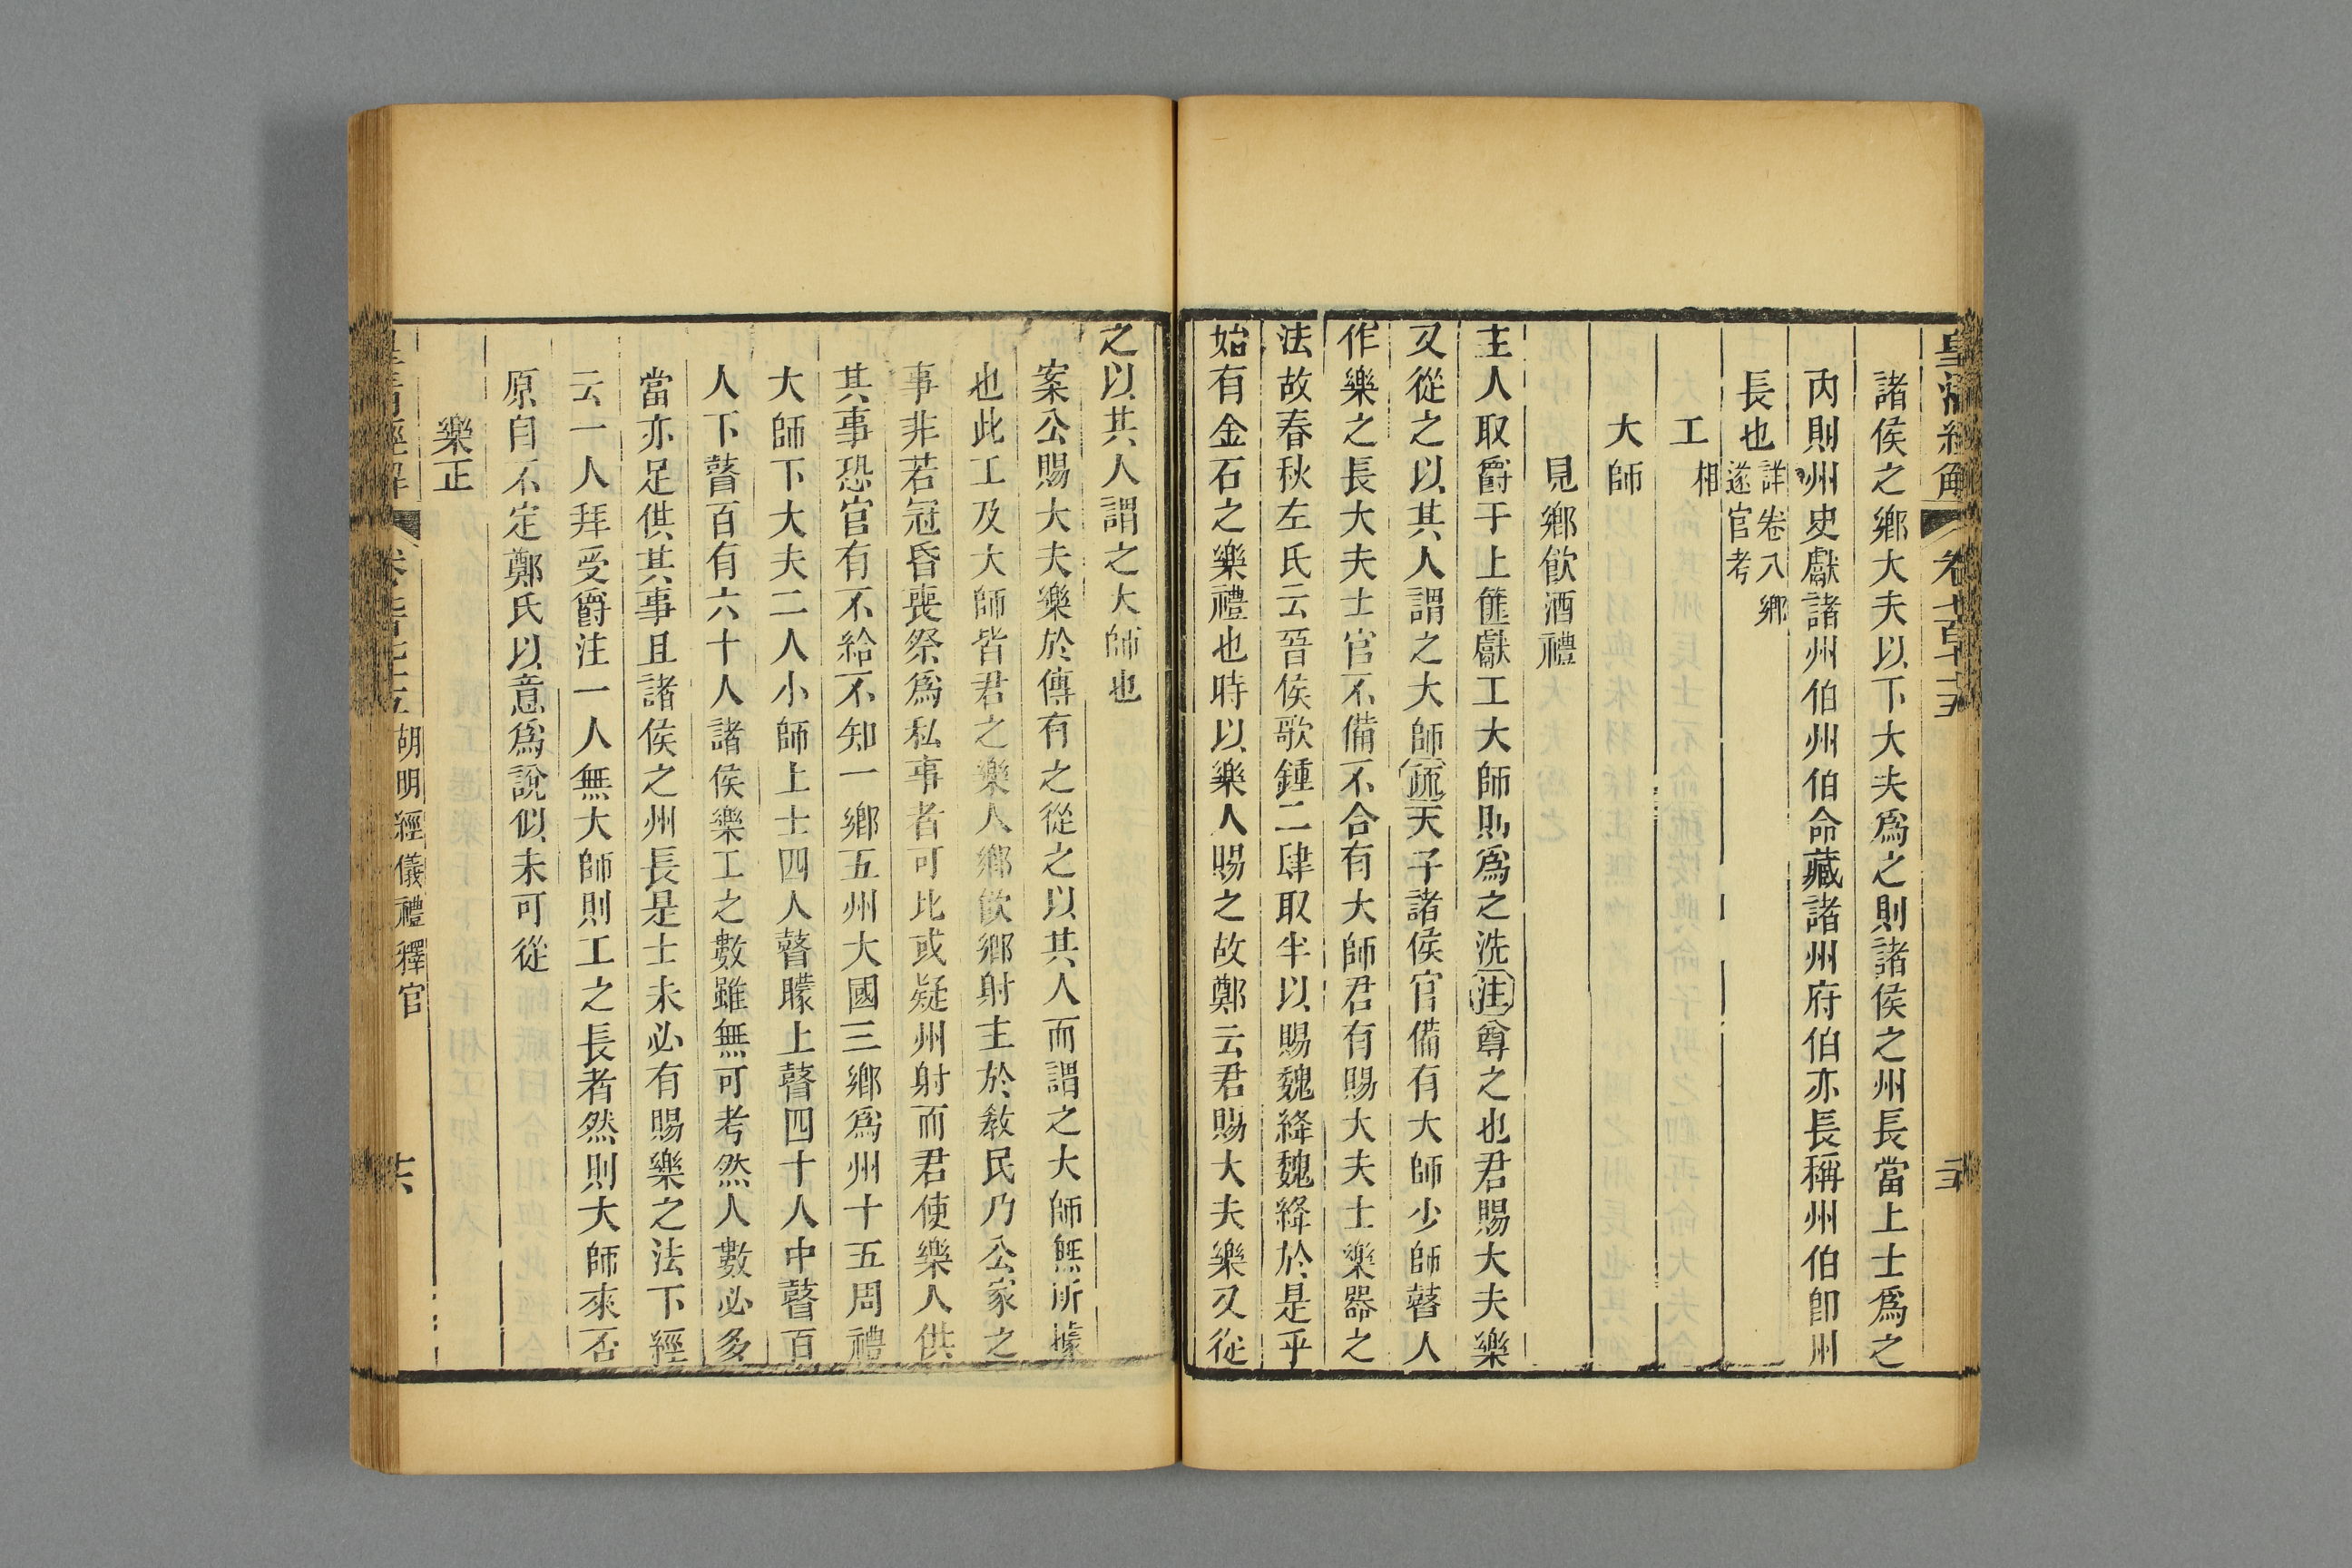 諸侯之鄉大夫以下大夫爲之則諸侯之州長當上士爲之
内則州史獻諸州伯州伯命藏諸州府伯亦長稱州伯卽州
長也詳卷八鄉遂官考
工相
大師
見鄉飲酒禮
主人取爵于上篚獻工大師則爲之洗注尊之也君賜大夫樂
又從之以其人謂之大師疏天子諸侯官備有大師少師瞽人
作樂之長大夫士官不備不合有大師君有賜大夫士樂器之
法故春秋左氏云晉侯歌鍾二肆取半以賜魏絳魏絳於是乎
始有金石之樂禮也時以樂人賜之故鄭云君賜大夫樂又從
之以其人謂之大師也
案公賜大夫樂於傳有之從之以其人而謂之大師無所據
也此工及大師皆君之樂人鄉飲鄉射主於敎民乃公家之
事非若冠昏喪祭爲私事者可比或疑州射而君使樂人供
其事恐官有不給不知一鄉五州大國三鄉爲州十五周禮
大師下大夫二人小師上士四人瞽矇上瞽四十人中瞽百
人下瞽百有六十人諸侯樂工之數雖無可考然人數必多
當亦足供其事且諸侯之州長是士未必有賜樂之法下經
云一人拜受爵注一人無大師則工之長者然則大師來否
原自不定鄭氏以意爲說似未可從
樂正
胡明經儀禮釋官